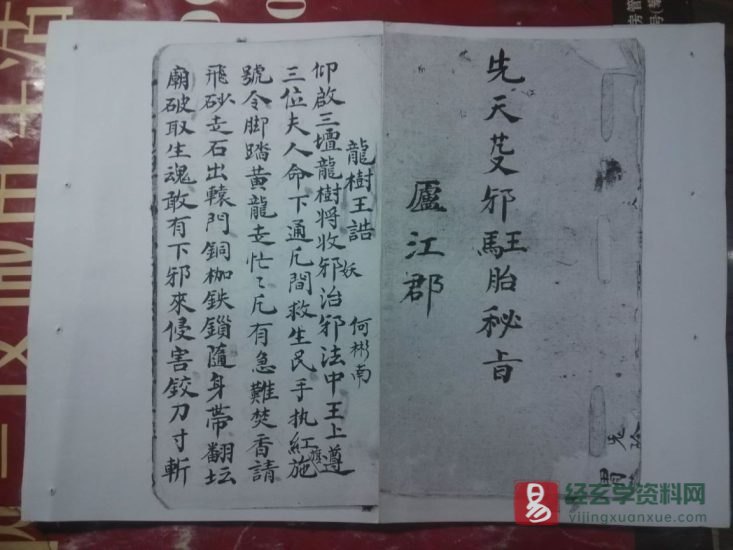 先天芟邪駐胎秘旨
廬江郡
龍樹王誥 何彬南
仰啟三壇龍樹將收邪妖治邪法中王上遵
三位夫人命下通凡間救生民手执紅旗施
號令脚踏黃龍走忙〻凡有急難焚香請
飛砂走石出轅門銅枷鉄鎻隨身帶翻坛
廟破取生魂敢有下邪來侵害鉸刀寸斬
易 经玄学资料网
vijingxuanxue.com